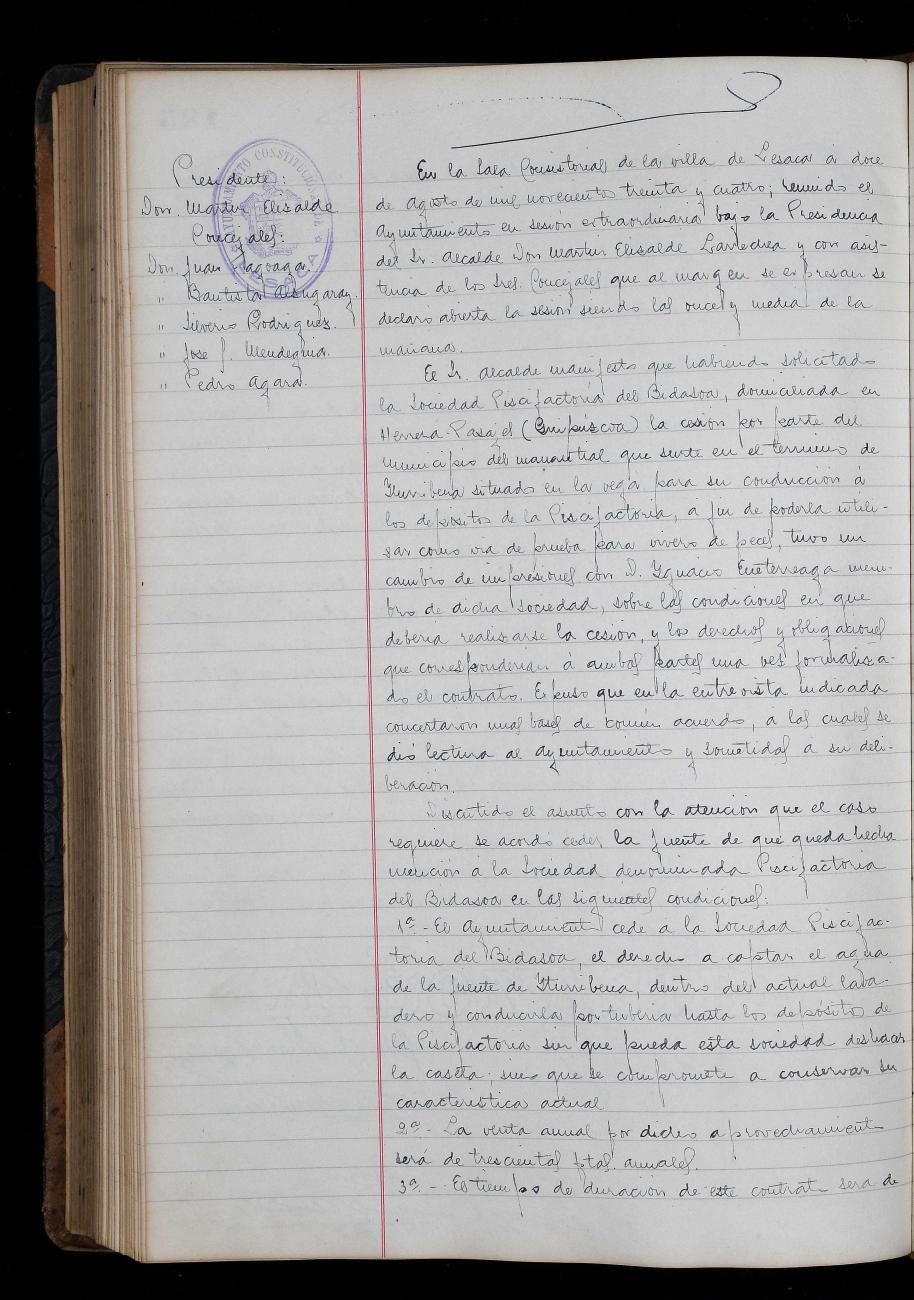 Presidente:
Don. Martin Elisalde
Concejales:
Don. Juan Tagoaga.
" Bautista Alzugaray.
" Silverio Rodriguez.
" Jose J. Mendeguia.
" Pedro Agara.
AYUNTAMIENTO CONSTITUCIONAL DE LESACA
En la Sala Consistorial de la villa de Lesaca á doce
de Agosto de mil novecientos treinta y cuatro; reunido el
Ayuntamiento en sesión extraordinaria bajo la Presidencia
del Sr. Alcalde Don Martin Elisalde Larredrea y con asis-
tencia de los Sres. Concejales que al margen se expresan se
declaro abierta la sesión siendo las once y media de la
mañana.
El Sr. Alcalde manifesto que habiendo solicitado
la Sociedad Piscifactoria del Bidasoa, domiciliada en
Herrera-Pasajes (Guipúzcoa) la cesión por parte del
municipio del manantial que surte en el termino de
Yturribera situado en la vega para su conducción á
los depósitos de la Piscifactoria, a fin de poderla utili-
sar como via de prueba para vivero de peces, tuvo un
cambio de impresiones con D. Ygnacio miem-
bro de dicha sociedad, sobre las condiciones en que
deberia realisarse la cesión, y los derechos y obligaciones
que corresponderian á ambas partes una ves formalisa-
do el contrato. Expuso que en la entrevista indicada
concertaron unas bases de común acuerdo, a las cuales se
dió lectura al Ayuntamiento y sometidas a su deli-
beración.
Discutido el asunto con la atención que el caso
requiere se acordó ceder la fuente de que queda hecha
mención á la Sociedad denominada Piscifactoria
del Bidasoa en las siguientes condiciones:
1ª.- El Ayuntamiento cede a la Sociedad Piscifac-
toria del Bidasoa, el derecho a captar el agua
de la fuente de Yturribera, dentro del actual lava-
dero y conducirla por tuberia hasta los depósitos de
la Piscifactoria sin que pueda esta sociedad deshacer
la caseta; sino que se compromete a conservar su
caracteristica actual
2ª.- La renta anual por dicho aprovechamiento
será de trescientas ptas. anuales.
3ª.- El tiempo de duración de este contrato sera de